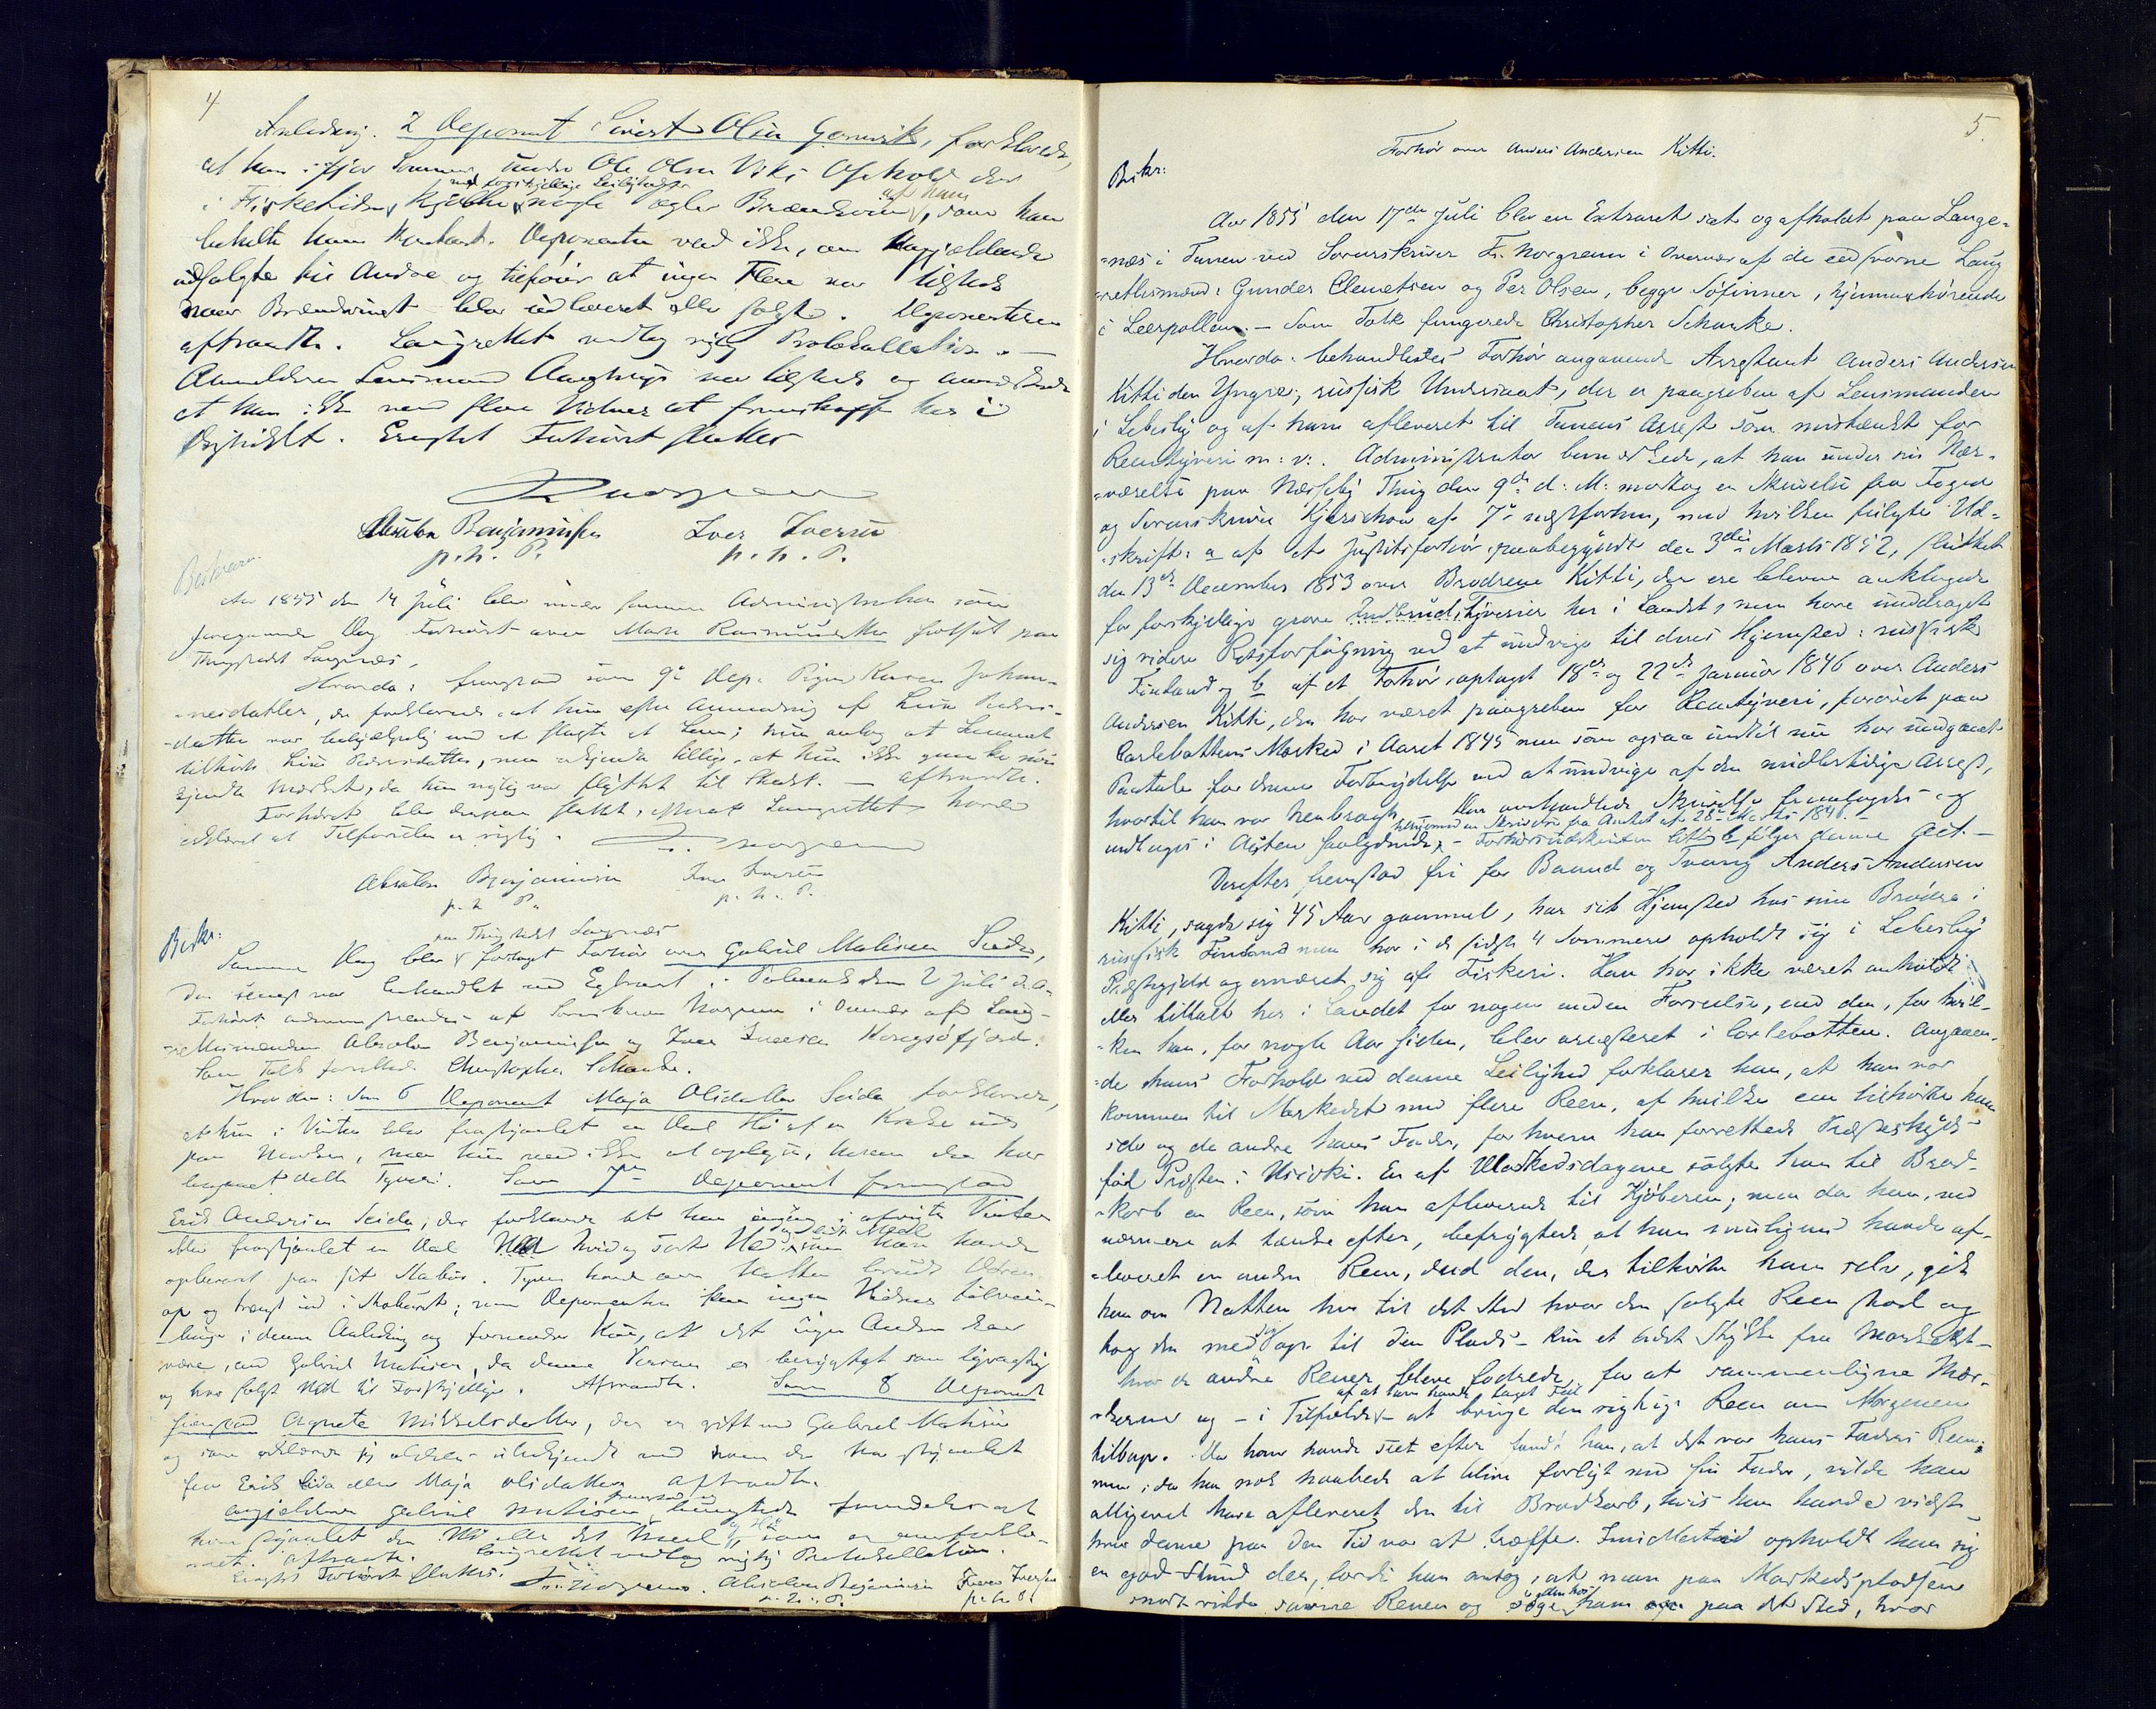 4
Anledning. 2 Deponent Sivert Olsen Gornvik, forklarede,
at han ifjor Sommer under Ole Olsen Viks Ophold der
ved forskjellige Leiligheder af ham
i Fisketiden kjøbte nogle Pægler Brændeviin, som han
betalte ham kontant. Deponenten veed ikke, om Angjældende
udsolgte til Andre og tilføier at ingen Flere var tilstede
naar Brændevinet blev udleveret eller solgt. Deponenten
aftraadte. Laugrettet vedtog rigtig Protokollation. —
Anmelderen Lensmand var tilstede og anmærkede
at han ikke veed flere Vidner at fremskaffe her i
Distriktet. Eragtet Forhøret sluttet
Absalon Benjaminsen Iver Iversen
p. h. P. p. h. P.
Beskreven.
Aar 1855 den 14 Juli blev under samme Administration som
foregaaende Dag Forhøret over Marit Rasmusdatter fortsat paa
Thingstedet Langnæs.
Hvorda: fremstod som 9de Dep. Pigen Karen Johan-
-nesdatter, der forklarede at hun efter Anmodning af Peders-
-datter var behjælpelig med at slagte et Lam; hun antog at Lammet
tilhørte Pedersdatter, men tilstod tillige, at hun ikke nøie
kjendte Mærket, da hun nylig var flyttet til Stedet. — aftraadte.
Forhøret blev derpaa sluttet, efterat Laugrettet havde
erklæret at Tilførselen er rigtig.
Fr. Norgreen
Absalon Benjaminsen Iver Iversen
p. h. P. p. h. P.
Beskr:
paa Thingstedet Langnæs
Samme Dag blev fortsat Forhør over Gabriel Mathisen Seida,
der senest var behandlet ved Extraret i Polmak den 2 Juli d. A.
Forhøret administreredes af Sorenskriver Norgreen i Overvær af Laug-
-rettesmændene Absalon Benjaminsen og Iver Iversen Korsfjord.
Som Tolk forrettede Christopher Schanke.
Hvorda: Som 6 Deponent Maja Olsdatter Seida forklarer,
at hun i Vinter blev frastjaalet en Deel Hø af en Krakke ude
paa Marken, men hun veed ikke at oplyse, hvem der har
begaaet dette Tyveri. Som 7de Deponent fremstod
Erik Andersen Seida, der forklarede at han engang i afvigte Vinter
blev frastjaalet en Deel hvid og sort Uld og lidt Meel som han havde
opbevaret paa sit Stabur. Tyven havde om Natten brudt Døren
op og trængt ind i Staburet; men Deponenten kan ingen Vidner tilveie-
-bringe i denne Anledning og formoder kun, at det ingen Anden kan
være, end Gabriel Mathisen, da denne Person er berygtet som tyvagtig
og har solgt Uld til Forskjellige. Aftraadte. Som 8 Deponent
fremstod Aagnete Mikkelsdatter, der er gift med Gabriel Mathisen
og som erklærede sig aldeles ubekjendt med hvem der har stjaalet
fra Erik Seida eller Maja Olsdatter. aftraadte.
Angjældende Gabriel Mathisen fremstod og benægtede fremdeles at
have stjaalet den Uld eller det Meel og Hø, som er omforkla-
-ret. aftraadte. Laugrettet vedtog rigtig Protokollation.
Eragtet Forhøret sluttet. Fr. Norgreen. Absalon Benjaminsen Iver Iversen
p. h. P. p. h. P.
5.
Forhør over Anders Andersen Kitti.
Beskr:
Aar 1855 den 17de Juli blev en Extraret sat og afholdt paa Lange-
-næs i Tanen ved Sorenskriver Fr. Norgreen i Overvær af de eedsvorne Laug-
-rettesmænd: Gunder Clemetsen og Per Olsen, begge Søfinner, hjemmehørende
i Leerpollen. — Som Tolk fungerede Christopher Schanke.
Hvorda: behandledes Forhør angaaende Arrestant Anders Andersen
Kitti den Yngre, russisk Undersaat, der er paagreben af Lensmanden
i Lebesby og af ham afleveret til Tanens Arrest som mistænkt for
Reentyveri m: v:. Administrator bemærkede, at han under sin Nær-
-værelse paa Næsseby Thing den 9de d: M: modtog en Skrivelse fra Foged
og Sorenskriver Kjerschow af 7de næstforhen, med hvilken fulgte Ud-
-skrift: a af et Justitsforhør, paabegyndt den 3die Marts 1852, sluttet
den 13de December 1853 over Brødrene Kitti, der ere blevne anklagede
for forskjellige grove Indbruds Tyverier her i Landet, men have unddraget
sig videre Retsforfølgning ved at undvige til deres Hjemsted: russisk
Finland, og b af et Forhør, optaget 18de og 22de Januar 1846 over Anders
Andersen Kitti, der har været paagreben for Reentyveri, forøvet paa
Carlebottens Marked i Aaret 1845 men som ogsaa indtil nu har undgaaet
Paatale for denne Forbrydelse ved at undvige af den midlertidige Arrest,
hvortil han var henbragt. Den omhandlede Skrivelse fremlagdes og
tilligemed en Skrivelse fra Amtet af 28de Marts 1846. —
indtages i Acten saalydende — Forhørsudskriften Litr. b følger denne Act. —
Derefter fremstod fri for Baand og Tvang Anders Andersen
Kitti, sagde sig 45 Aar gammel, har sit Hjemsted hos sine Brødre i
russisk Finland men har i de sidste 4 Sommere opholdt sig i Lebesby
Præstegjeld og ernæret sig af Fiskeri. Han har ikke været anholdt
eller tiltalt her i Landet for nogen anden Forseelse, end den, for hvil-
-ken han, for nogle Aar siden, blev arresteret i Carlebotten. Angaaen-
-de hans Forhold ved denne Leilighed forklarer han, at han var
kommen til Markedet med flere Reen, af hvilke een tilhørte ham
selv og de andre hans Fader, for hvem han forrettede Præsteskyds-
fød Præsten i Utsjoki. En af Markedsdagene solgte han til Brod-
-korb en Reen, som han afleverede til Kjøberen; men da han, ved
nærmere at tænke efter, befrygtede at han muligens havde af-
-leveret en anden Reen, end den, der tilhørte ham selv, gik
han om Natten hen til det Sted hvor den solgte Reen stod og
tog den med sig op til den Plads — kun et lidet Stykke fra Markedet —
hvor de andre Rener bleve fodrede for at sammenligne Mær-
af at han havde taget Feil
-kerne og — i Tilfælde — at bringe den rigtige Reen om Morgenen
tilbage. Da han havde seet efter fandt han, at det var hans Faders Reen;
men, da han nok haabede at blive forligt med sin Fader, vilde han
alligevel have afleveret den til Brodkorb, hvis han havde vidst
hvor denne paa den Tid var at træffe. Imidlertid opholdt han sig
en god Stund der, fordi han antog, at man paa Markedspladsen
snart vilde savne Renen og søge ham op paa det Sted, hvor